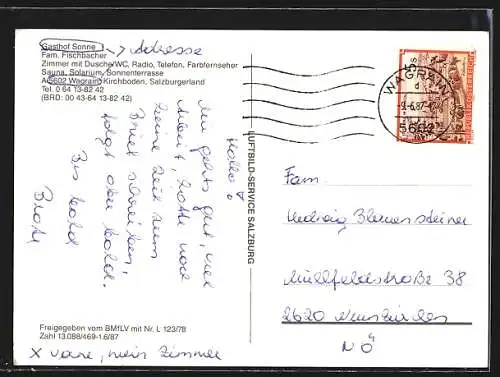 Gasthof Sonne → Adresse
Fam. Fischbacher
Zimmer mit Dusche/WC, Radio, Telefon, Farbfernseher
Sauna, Solarium, Sonnenterrasse
A-5602 Wagrain/Kirchboden, Salzburgerland
Tel. 0 64 13-82 42
(BRD: 00 43-64 13-82 42)
Hallo!
Mir gehts gut, viel
Arbeit, hatte noch
keine Zeit zum
Brief schreiben,
folgt aber bald.
Bis bald
Freigegeben vom BMfLV mit Nr. L 123/78
Zahl 13.088/469-1.6/87
X mein Zimmer
LUFTBILD-SERVICE SALZBURG
WAGRAIN
5602
Fam.
Hedwig
Mühlfeldstraße 38
2620 Neunkirchen
NÖ